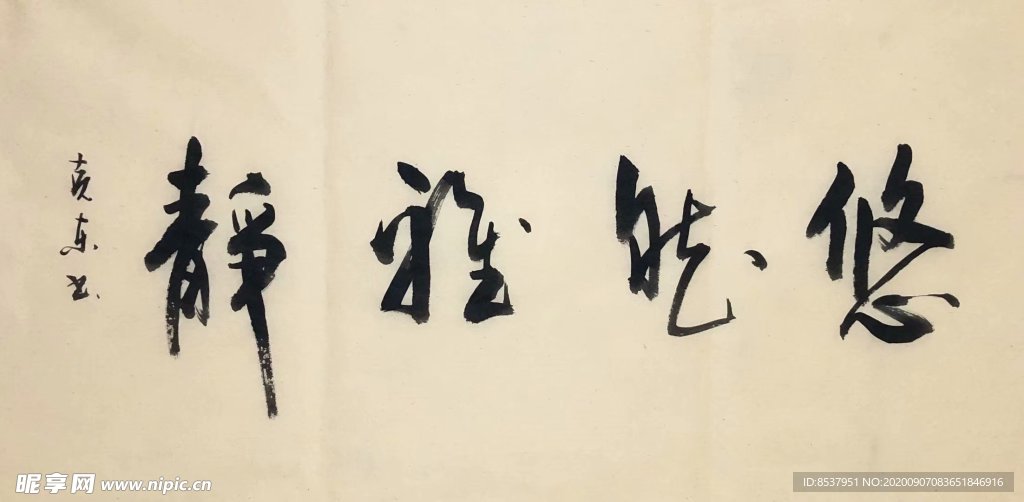 悠然雅静
克东书
昵享网 www.nipic.cn
ID:8537951 NO:20200907083651846916